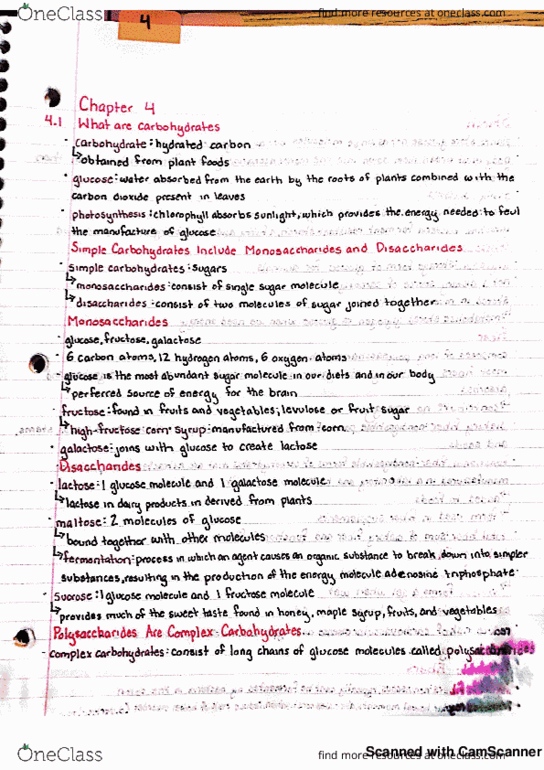 OneClass
find more resources at oneclass.com
4
Chapter 4
4.1 What are carbohydrates
· carbohydrate: hydrated carbon
↳ obtained from plant foods
· glucose: water absorbed from the earth by the roots of plants combined with the
carbon dioxide present in leaves
· photosynthesis: chlorophyll absorbs sunlight, which provides the energy needed to feul
the manufacture of glucose
Simple Carbohydrates Include Monosaccharides and Disaccharides
· simple carbohydrates: sugars
↳ monosaccharides: consist of single sugar molecule
↳ disaccharides: consist of two molecules of sugar joined together
Monosaccharides
· glucose, fructose, galactose
· 6 carbon atoms, 12 hydrogen atoms, 6 oxygen atoms
· glucose is the most abundant sugar molecule in our diets and in our body
↳ perferred source of energy for the brain
· fructose: found in fruits and vegetables; levulose or fruit sugar
↳ high-fructose corn syrup: manufactured from corn
· galactose: joins with glucose to create lactose
Disaccharides
· lactose: 1 glucose molecule and 1 galactose molecule
↳ lactose in dairy products in derived from plants
· maltose: 2 molecules of glucose
↳ bound together with other molecules
↳ fermentation: process in which an agent causes an organic substance to break down into simpler
substances, resulting in the production of the energy molecule adenosine triphosphate
· Sucrose: 1 glucose molecule and 1 fructose molecule
↳ provides much of the sweet taste found in honey, maple syrup, fruits, and vegetables
Polysaccharides Are Complex Carbohydrates
· complex carbohydrates: consist of long chains of glucose molecules called polysaccharides
OneClass
find more resources at oneclass.com
Scanned with CamScanner